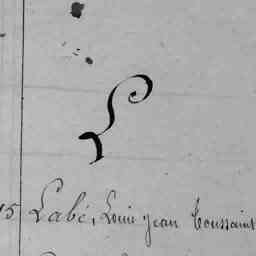 L
15 Labé, Louis Jean Toussaint